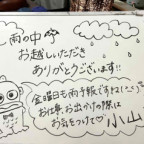 雨の中
お越しいただき
ありがとうございます!!
金曜日も雨予報ですね(>_<)
お仕事、お出かけの際は
お気をつけて♡ 小山